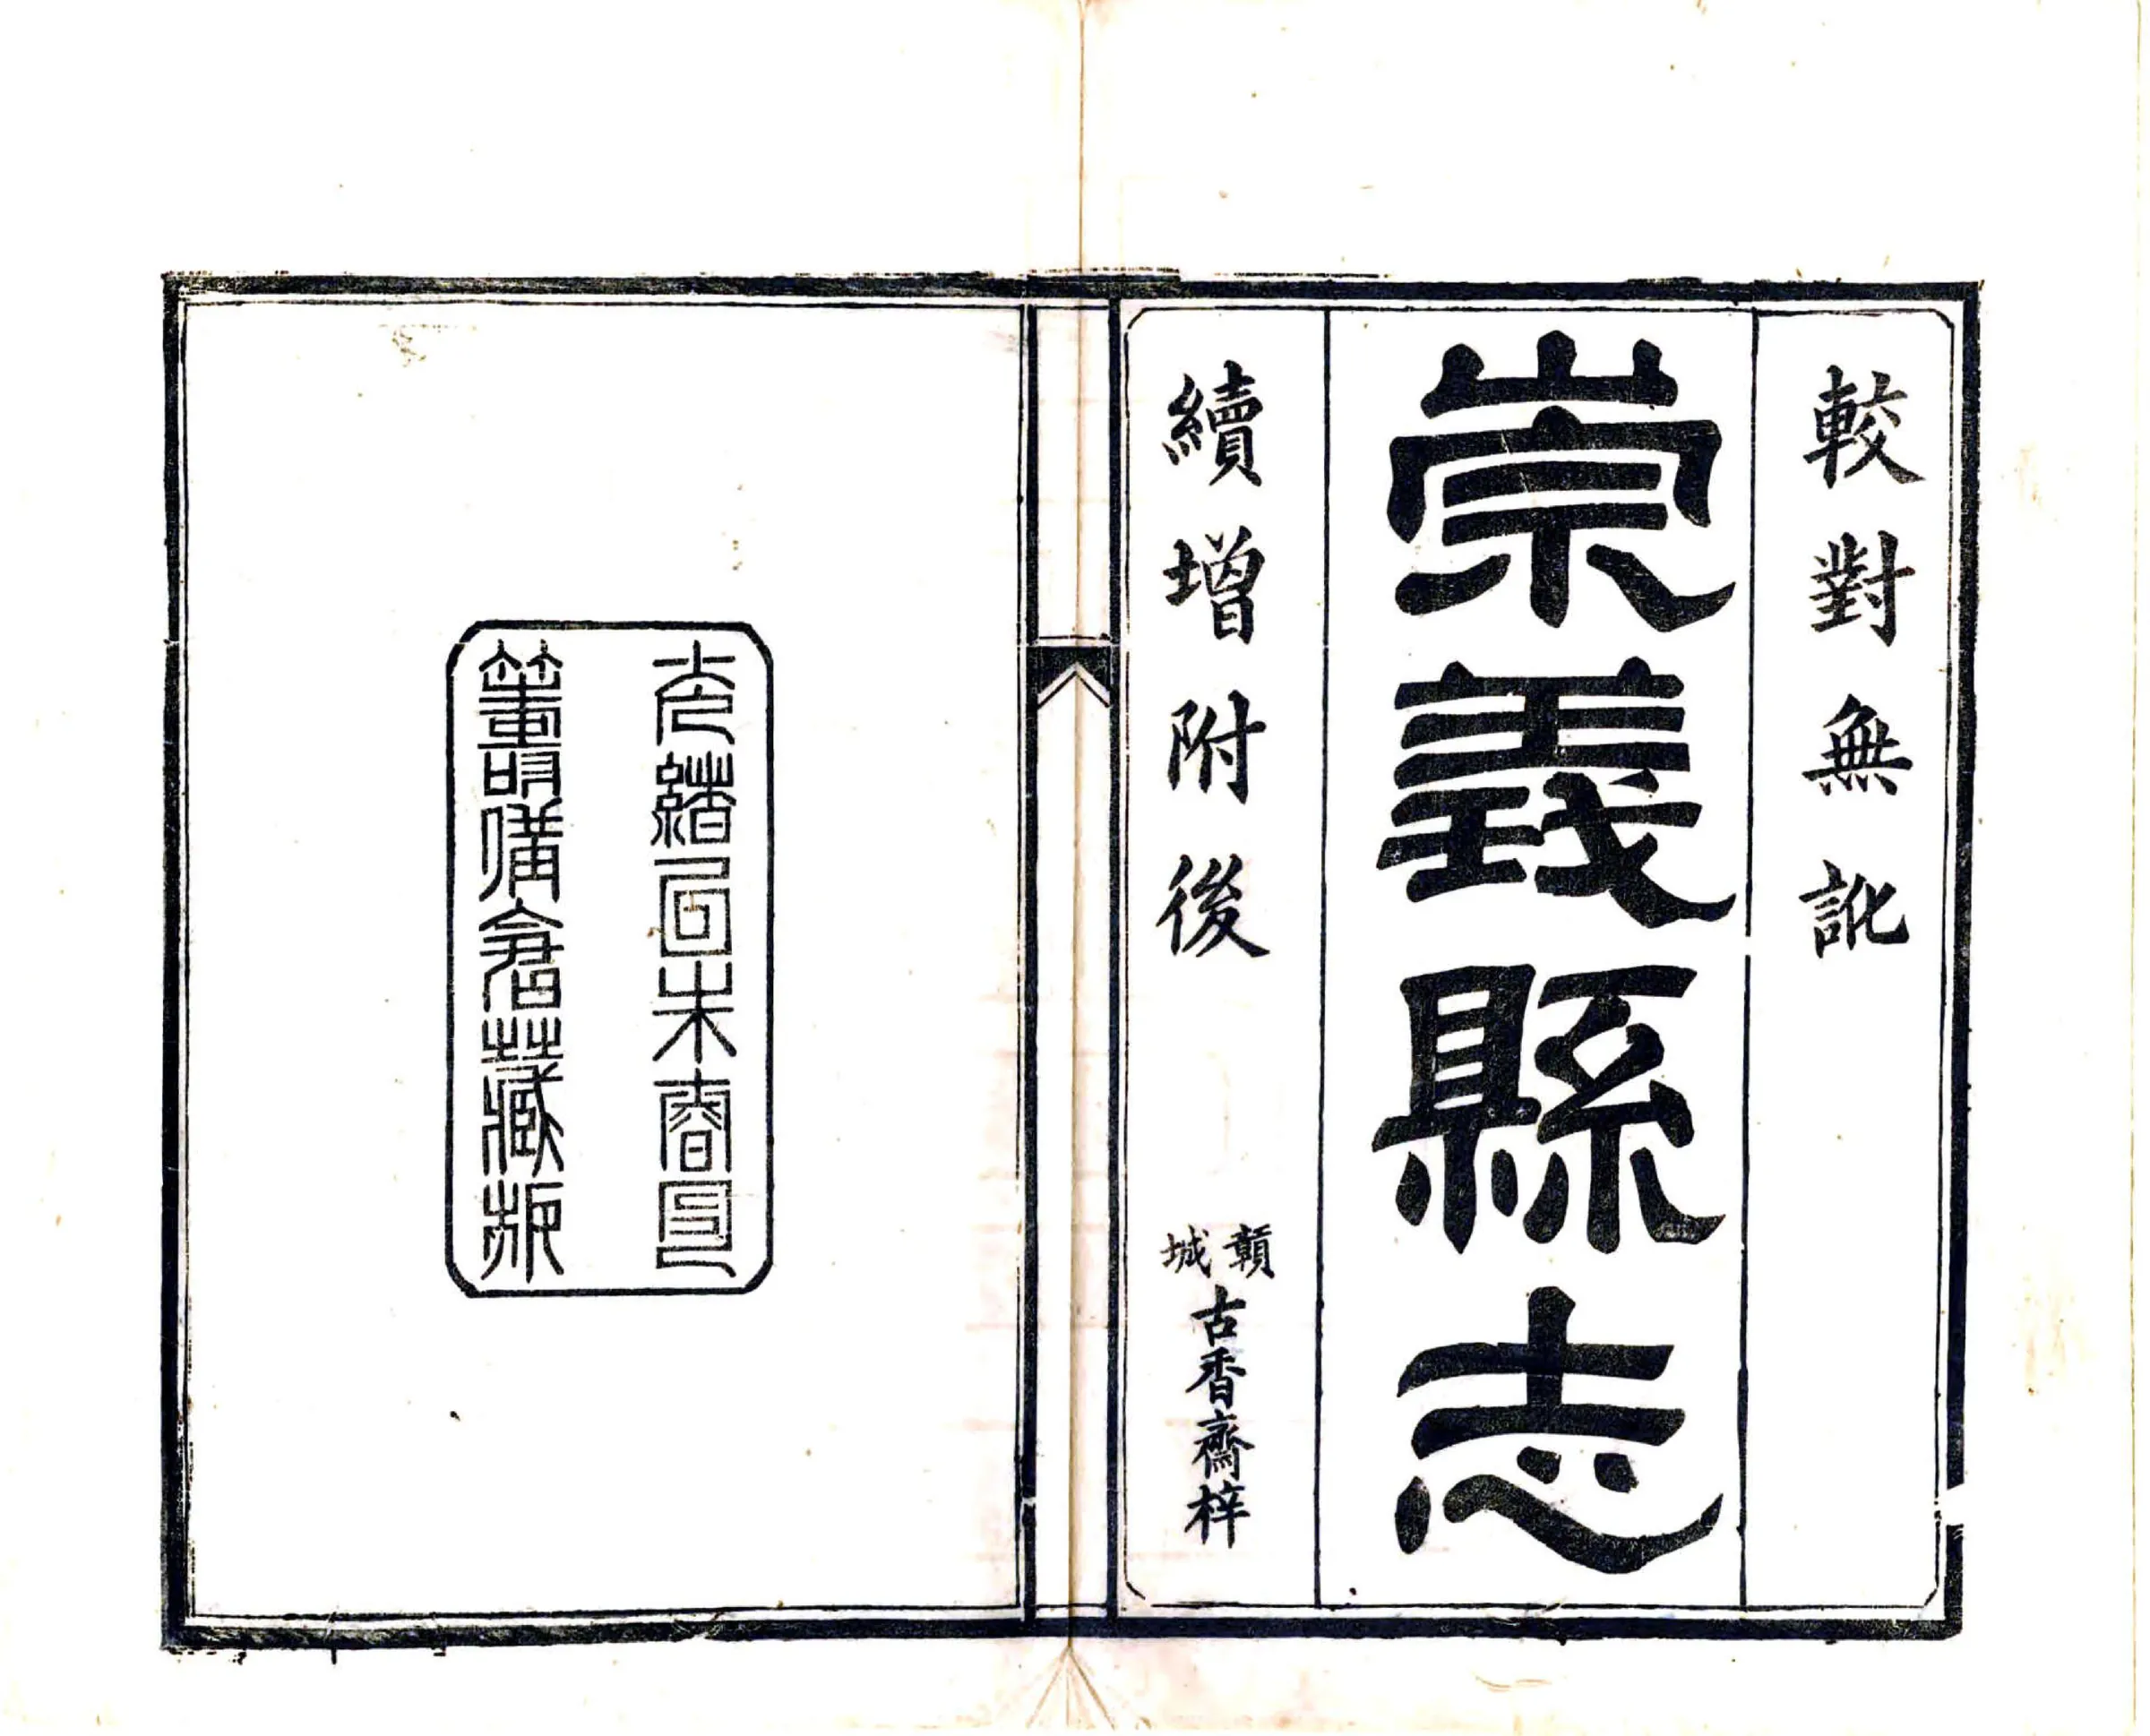 較對無訛
崇義縣志
續增附後
贛城古香齋梓
光緒乙未春印
籌備倉藏板